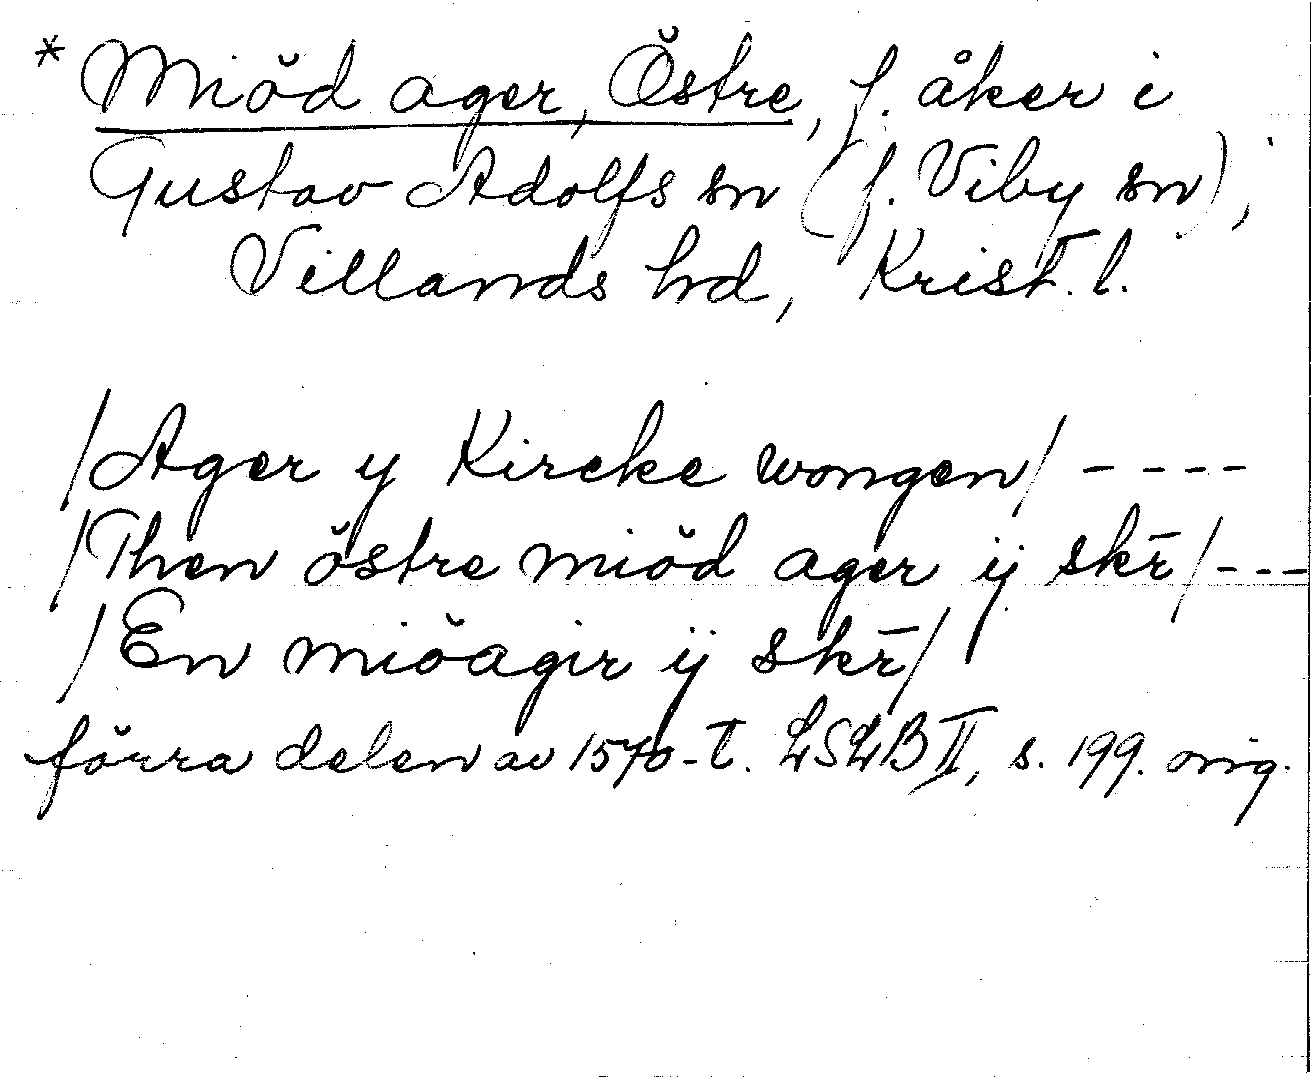 * Miöd ager, Östre, f. åker i
Gustav Adolfs sn (f. Viby sn),
Villands hd, Krist. l.
/Ager y Kircke wongen/ ----
/Then östre miöd ager ij skr̄/---
/En miöagir ij skr̄/
förra delen av 1570-t. LSLB II, s. 199. orig.